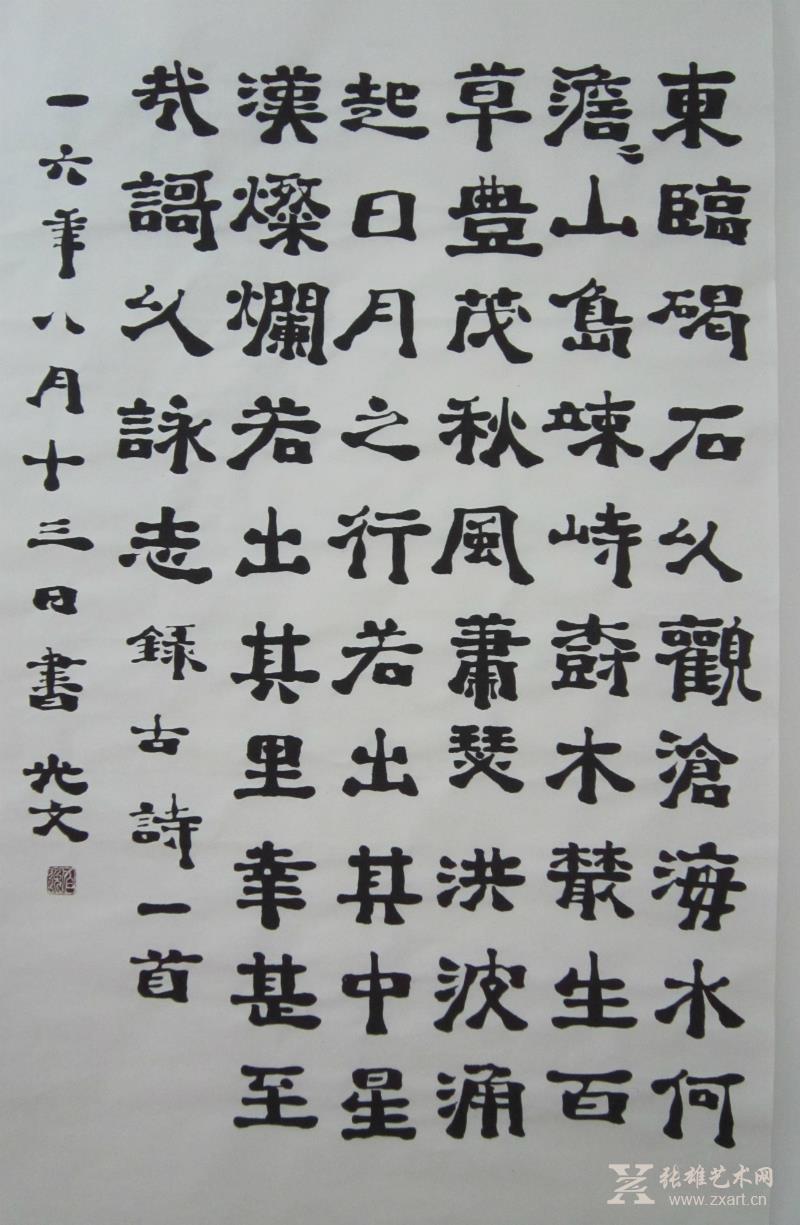 東臨碣石以觀滄海水何
澹〻山島竦峙樹木叢生百
草豊茂秋風蕭瑟洪波涌
起日月之行若出其中星
漢燦爛若出其里幸甚至
哉謌以詠志錄古詩一首
一六年八月十三日書光文
张雄艺术网
www.zxart.cn